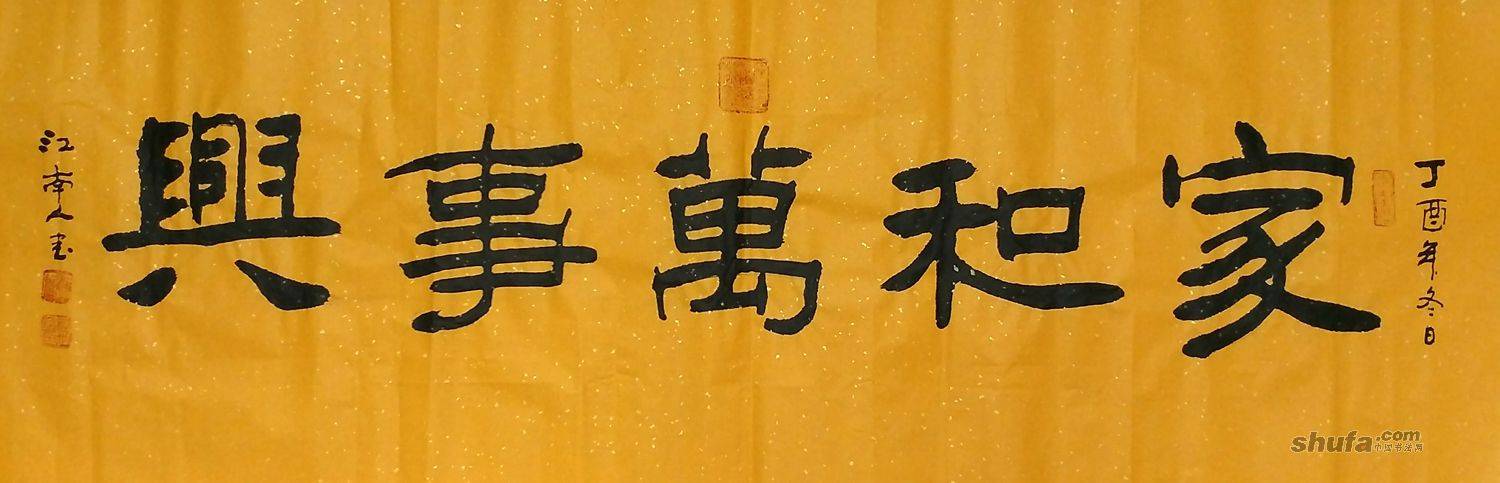 丁酉年冬日
家和萬事興
江南人书
shufa.com
中国书法网